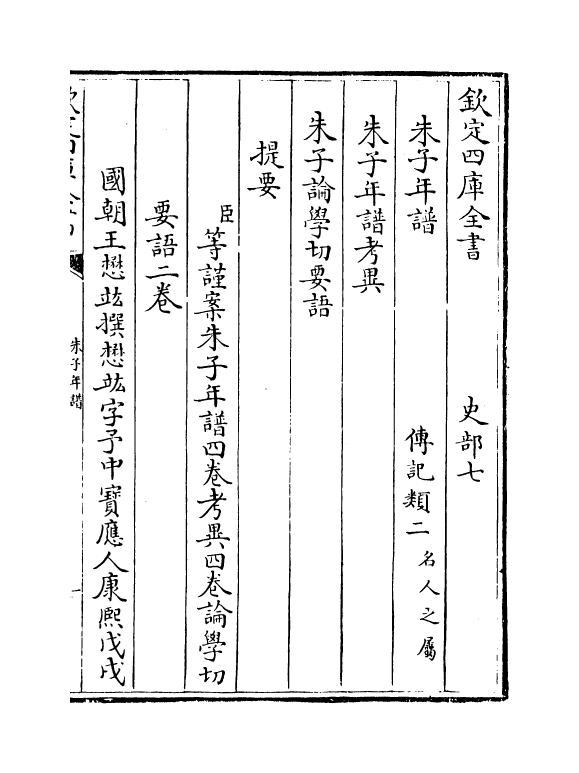 欽定四庫全書　史部七
朱子年譜　傳記類二 名人之屬
朱子年譜考異
朱子論學切要語
提要
臣等謹案朱子年譜四卷考異四卷論學切
要語二卷
國朝王懋竑撰懋竑字予中寶應人康熙戊戌
朱子年譜
一